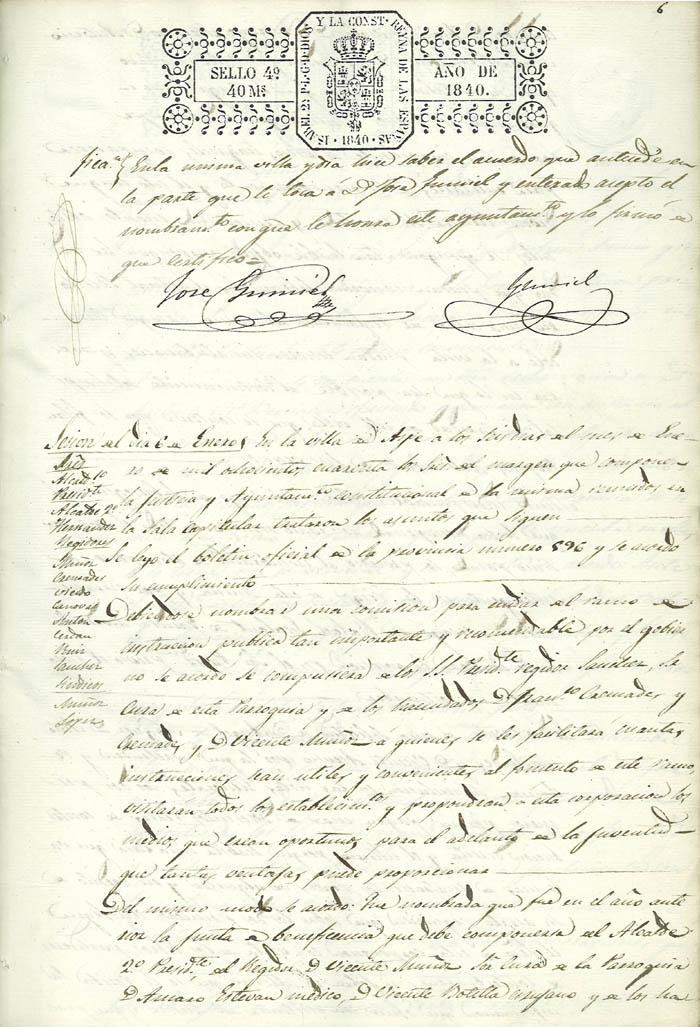 6
ISABEL 2ª P.L.G.D. DIOS Y LA CONST. REYNA DE LAS ESPAÑAS
SELLO 4º
40 Ms
AÑO DE
1840.
1840
ficaon En la misma villa y dia hice saber el acuerdo que antecede en
la parte que le toca a Dn Jose Gumiel y enterado acepto el
nombramto con que le honra este ayuntamto y lo firmó de
que certifico=
Jose Gumiel
Gumiel
Sesion del dia 6 de Enero En la villa de Aspe a los seis dias del mes de Ene-
ro de mil ochocientos cuarenta los Sres del margen que compone-
la justicia y Ayuntamto constitucional de la misma reunidos en
la sala capitular trataron los asuntos que siguen
Sres
Alcde 1º
Presidte
Alcalde 2º
Hernandez
Regidores
Muñoz
Cremades
Oviedo
Canovas
Anton
Cerdan
Ruiz
Sanchez
Sindicos
Muñoz
Lopez
Se leyo el boletin oficial de la provincia numero 596 y se acordó
su cumplimiento
Debiendose nombrar una comision para cuidar del ramo de
instruccion publica tan importante y recomendable por el gobier
no se acordo se compusiera de los SS. Presidte regidor Sanchez, Sr
Cura de esta Parroquia y de los hacendados Dn Franco Cremades y
Cremades, y Dn Vicente Muñoz a quienes se les facilitará cuantas
instrucciones sean utiles y convenientes al fomento de este ramo,
visitaran todos los establecimtos y propondran a esta corporacion los
medios que crean oportunos para el adelanto de la Juventud
que tantas ventajas puede proporcionar
Del mismo modo se acordo: Fue nombrada que fue en el año ante
rior la Junta de beneficencia que debe componerse del Alcalde
2º Presidte, del Regidor Dn Vicente Muñoz Sor Cura de la Parroquia
Dn Amaro Estevan medico, Dn Vicente Botella cirujano y de los ha-